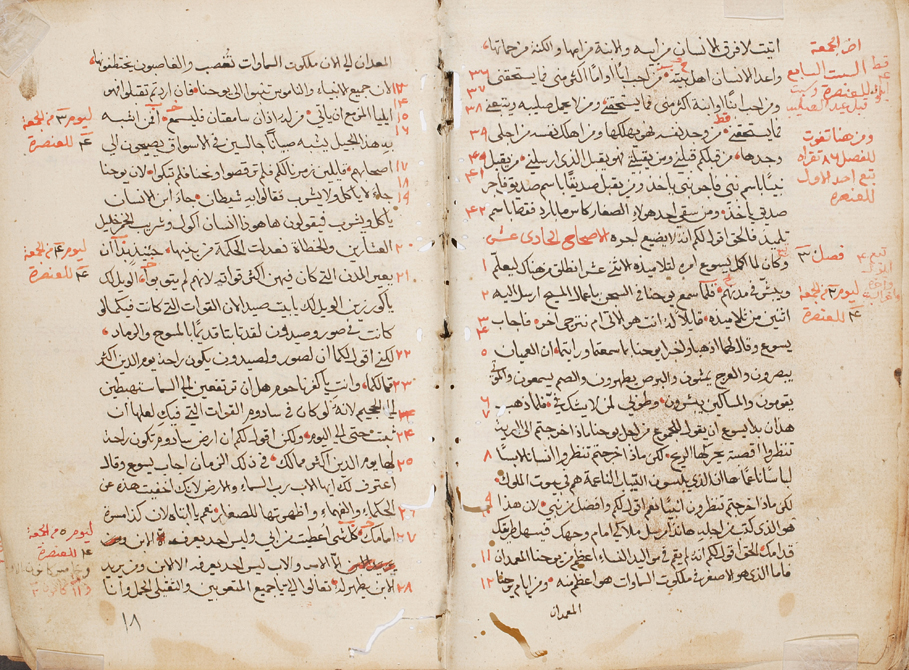 اتيت لافرق الانسان من ابيه والابنة من امها والكنة من حماتها
واعداء الانسان اهل بيته من احب ابًا او امًا اكثر مني فما يستحقني ٣٦
ومن احب ابنًا او ابنة اكثر مني فما يستحقني ومن لا يحمل صليبه ويتبعني ٣٧ ٣٨
فما يستحقني من وجد نفسه فهو يهلكها ومن اهلك نفسه من اجلي ٣٩
وجدها من قبلكم قبلني ومن يقبلني فهو يقبل الذي ارسلني من يقبل
نبيًا باسم نبي فاجر نبي ياخذ ومن يقبل صديقًا باسم صديق فاجر ٤١
صديق ياخذ ومن سقى احد هولاء الصغار كاس ما بارد فقط باسم ٤٢
تلميذ فالحق اقول لكم انه لا يضيع اجره الاصحاح الحادي عشر
وكان لما اكمل يسوع امره لتلاميذه الاثني عشر انطلق من هناك ليعلم ١
ويبشر في مدنهم فلما سمع يوحنا في السجن باعمال المسيح ارسل اليه ٢
اثنين من تلاميذه قايلًا له انت هو الاتي ام نترجى اخر فاجاب ٣ ٤
يسوع وقال لهما اذهبا واخبرا يوحنا بما سمعتما ورايتما ان العميان ٥
يبصرون والعرج يمشون والبرص يطهرون والصم يسمعون والموتى
يقومون والمساكين يبشرون وطوبى لمن لا يشك في فلما ذهب ٦ ٧
هذان بدا يسوع ان يقول للجموع من اجل يوحنا ماذا خرجتم الى البرية
تنظروا اقصبة يحركها الريح لكن ماذا خرجتم تنظروا انسانًا لابسًا ٨
لباسًا ناعمًا ها ان الذين يلبسون الثياب الناعمة هم في بيوت الملوك
لكن ماذا خرجتم تنظرون انبيًا نعم اقول لكم وافضل من نبي لان هذا ٩
هو الذي كتب من اجله هانذا مرسل ملاكي امام وجهك فيسهل طريقك
قدامك الحق اقول لكم انه لم يقم في مواليد النساء اعظم من يوحنا المعمدان ١١
فاما الذي هو الاصغر في ملكوت السماوات هو اعظم منه ومن ايام يوحنا ١٢
المعمدان
احد الجمعة
السبت السابع
للعنصرة
ومن هنا تفوت
للفصل ٨٦ تقراه
احد الاول
للعنصرة
فصل ٣
ليوم ٣ من الجمعة
٤ للعنصرة
المعمدان الى الان ملكوت السماوات تغصب والغاصبون يختطفونها
لان جميع الانبياء والناموس تنبوا الى يوحنا فان اردتم تقبلوا فهو ١٣ ١٤
ايليا المزمع ان ياتي من له اذان سامعتان فليسمع بمن اشبه ١٥ ١٦
به هذا الجيل يشبه صبيانًا جالسين في الاسواق يصيحون الى
اصحابهم قايلين زمرنا لكم فلم ترقصوا ونحنا فلم تبكوا لان يوحنا ١٧ ١٨
جاء لا ياكل ولا يشرب فقالوا به شيطان جاء ابن الانسان ١٩
ياكل ويشرب فيقولون ها هوذا انسان اكول وشريب الخمر خليل
العشارين والخطاة فعدلت الحكمة من بنيها حينيذ بدا ان ٢٠
يعير المدن التي كان فيهن اكثر قواته لانهم لم يتوبوا الويل لك ٢١
يا كورزين الويل لك يا بيت صيدا لان القوات التي كانت فيكما لو
كانت في صور وصيدون لقد تابتا قديمًا بالمسوح والرماد
لكني اقول لكما ان لصور ولصيدون يكون راحة يوم الدين اكثر ٢٢
مما لكما وانت يا كفرناحوم هل ان ترتفعين الى السما ستهبطين ٢٣
الى الجحيم لانه لو كان في سادوم القوات التي فيك لعلها ان
تثبت حتى الى اليوم ولكن اقول لكم ان ارض سادوم تكون راحة ٢٤
لها يوم الدين اكثر مما لك في ذلك الزمان اجاب يسوع وقال ٢٥
اعترف لك ايها الاب رب السماء والارض لانك اخفيت هذه عن
الحكماء والفهماء واظهرتها للصغار نعم يا ابتاه لان كذا مسرة ٢٦
امامك كل شي اعطيت من ابي وليس احد يعرف الابن ٢٧
الا الاب والاب ليس احد يعرفه الا الابن ومن يريد
الابن يظهر له تعالوا الي يا جميع المتعوبين والثقيلي الحمل وانا ٢٨
ليوم ٣ من الجمعة
٤ للعنصرة
ليوم ٤ من الجمعة
٤ للعنصرة
ليوم ٥ من الجمعة
٤ للعنصرة
١٨